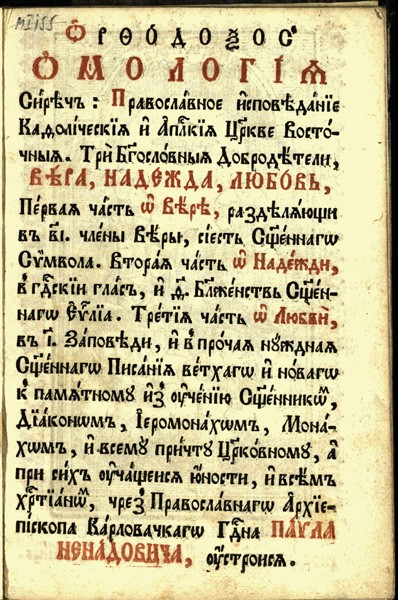 МІ155
Ѻ҆рѳо́доѯос
Ѻ҆МОЛОГІ́Ѧ
Сирѣ́чъ: Правосла́вное и҆сповѣ́данїе
Каѳоли́ческїѧ и҆ А҆пⷭ҇лкїѧ Цр҃кве Восто́-
чныѧ. Три̑ Бг҃осло́вныѧ Добродѣ́тели,
ВѢ́РА, НАДЕ́ЖДА, ЛЮБО́ВЬ,
Пе́рваѧ ча́сть ѽ Вѣ́рѣ, раздѣлѧ́ющи
въ в҃і. чле́ны Вѣ́ры, сіе́сть Сщ҃е́ннагѡ
Сѷ́мвола. Втора́ѧ ча́сть ѽ Наде́жди,
в̾ гдⷭ҇кїи гла́съ, и҆ ѳ҃. Бл҃же́нствъ Сщ҃е́н-
нагѡ Еѵ҃лїа. Тре́тїѧ ча́сть ѽ Любви̑,
въ і҃. За́повѣди, и҆ в̾ про́чаѧ ну́ждная
Сщ҃е́ннагѡ Писа́нїѧ ве́тхагѡ и҆ но́вагѡ
к̾ па́мѧтному и҆з̾ ѹ҆че́нїю Сщ҃е́нникѡ́м,
Дїа́кономъ, І҆еромона́хомъ, Мона́-
хомъ, и҆ всему̀ при́чту Цр҃ко́вному, а҆
при си́хъ ѹ҆ча́щеисѧ ю҆́ности, и҆ всѣ̑мъ
хрⷭ҇тїа́нѡм, чрез̾ Правосла́внагѡ А҆рхїе-
пі́скопа Ка́рловачкагѡ Гдⷭ҇на ПА́ѴЛА
НЕНА́ДОВИЧА, ѹ҆стро́исѧ.